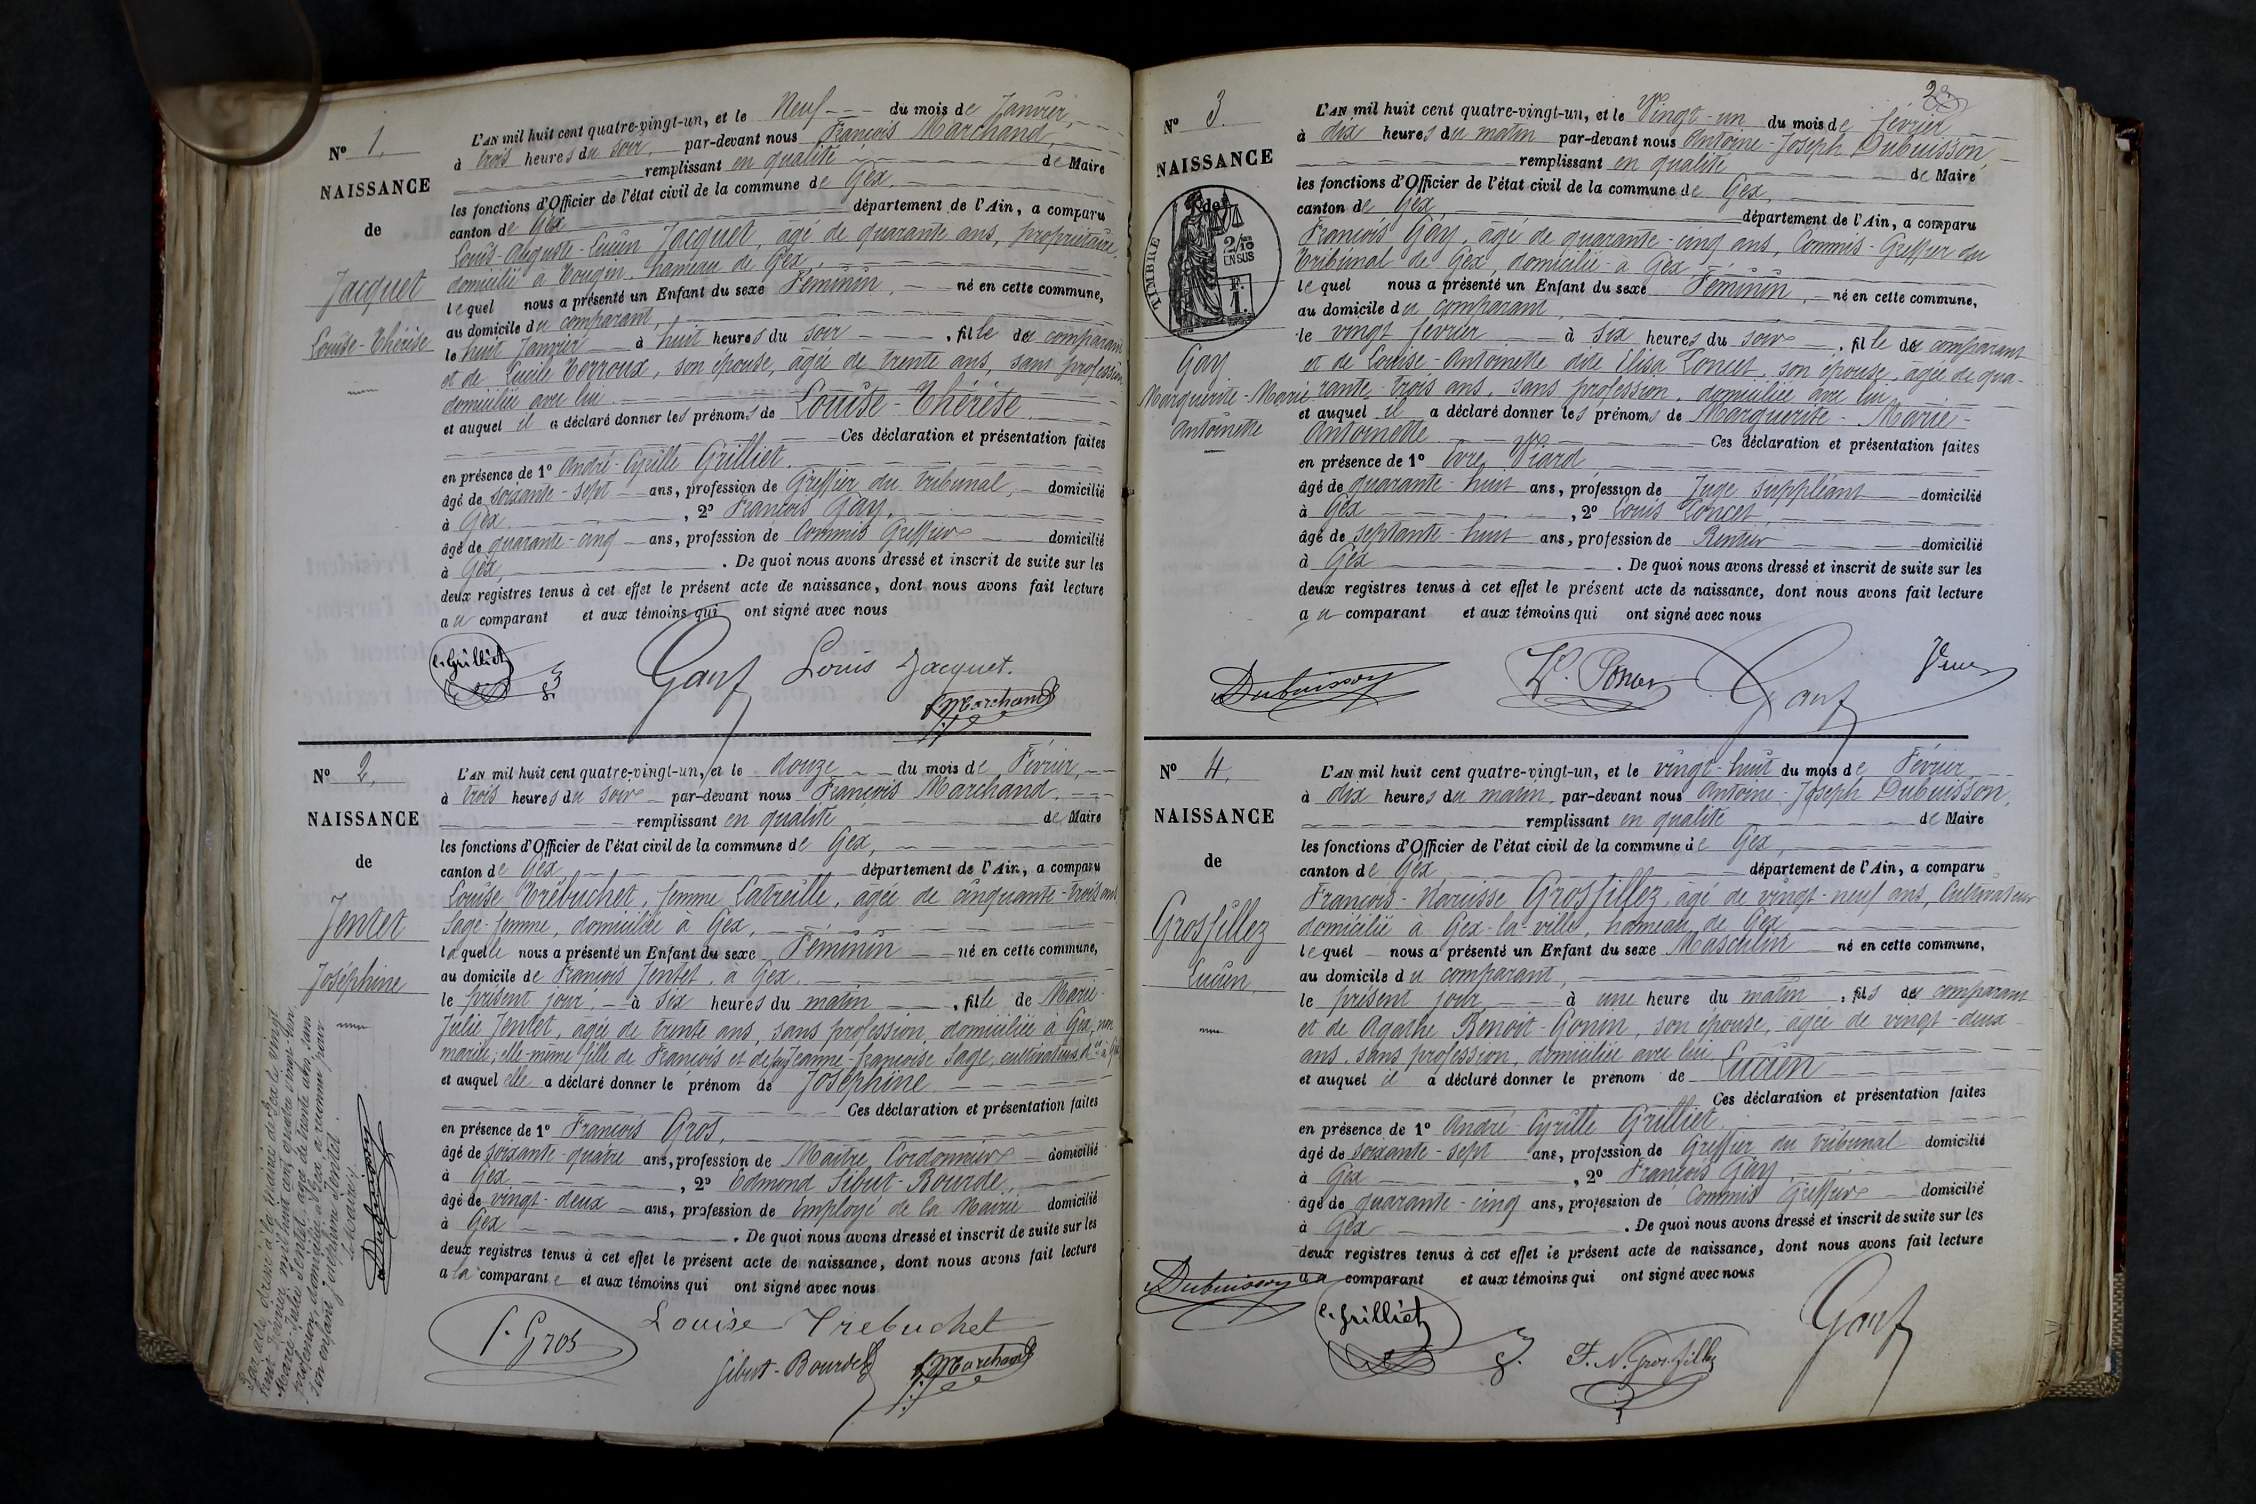 N° 1.
NAISSANCE
de
Jacquet
Louise-Thérèse
L'AN mil huit cent quatre-vingt-un, et le Neuf du mois de Janvier,
à trois heures du soir, par-devant nous François Marchand,
remplissant en qualité de Maire
les fonctions d'Officier de l'état civil de la commune de Gex,
canton de Gex département de l'Ain, a comparu
Louis-Auguste-Lucien Jacquet, âgé de quarante ans, propriétaire,
domicilié à Tougin, hameau de Gex,
lequel nous a présenté un Enfant du sexe Féminin, né en cette commune,
au domicile du comparant,
le huit Janvier à huit heures du soir, fille du comparant
et de Lucile Terroux, son épouse, âgée de trente ans, sans profession
domiciliée avec lui
et auquel il a déclaré donner les prénoms de Louise-Thérèse
Ces déclaration et présentation faites
en présence de 1° André-Cyrille Grilliet,
âgé de soixante-sept ans, profession de Greffier du tribunal, domicilié
à Gex, 2° François Gay,
âgé de quarante-cinq ans, profession de Commis Greffier domicilié
à Gex, . De quoi nous avons dressé et inscrit de suite sur les
deux registres tenus à cet effet le présent acte de naissance, dont nous avons fait lecture
au comparant et aux témoins qui ont signé avec nous
C. Grilliet Gay Louis Jacquet.
f. Marchand
N° 2.
NAISSANCE
de
Jentet
Joséphine
L'AN mil huit cent quatre-vingt-un, et le douze du mois de Février,
à trois heures du soir par-devant nous François Marchand,
remplissant en qualité de Maire
les fonctions d'Officier de l'état civil de la commune de Gex,
canton de Gex, département de l'Ain, a comparu
Louise Trébuchet, femme Latreille, âgée de cinquante-trois ans
Sage-femme, domiciliée à Gex,
laquelle nous a présenté un Enfant du sexe Féminin né en cette commune,
au domicile de François Jentet, à Gex,
le présent jour, à six heures du matin, fille de Marie-
Julie Jentet, âgée de trente ans, sans profession, domiciliée à Gex, non
mariée, elle-même fille de François et de fue Jeanne-Françoise Sage, cultivateurs, d.és à Gex
et auquel elle a déclaré donner le prénom de Joséphine
Ces déclaration et présentation faites
en présence de 1° François Gros,
âgé de soixante-quatre ans, profession de Maître Cordonnier domicilié
à Gex, 2° Edmond Sibut-Bourde,
âgé de vingt-deux ans, profession de Employé de la Mairie domicilié
à Gex . De quoi nous avons dressé et inscrit de suite sur les
deux registres tenus à cet effet le présent acte de naissance, dont nous avons fait lecture
à la comparante et aux témoins qui ont signé avec nous
f. Gros Louise Trebuchet
Sibut-Bourde f. Marchand
Par acte dressé à la mairie de Gex le vingt
Marie-Julie Jentet, âgée de trente ans, sans
profession, domiciliée à Gex, a reconnu pour
son enfant Joséphine Jentet.
Dubuisson
N° 3.
NAISSANCE
de
TIMBRE
2/10
EN SUS
F.
1.
Gay
Marguerite-Marie
Antoinette
L'AN mil huit cent quatre-vingt-un, et le Vingt-un du mois de février
à dix heures du matin par-devant nous Antoine-Joseph Dubuisson,
remplissant en qualité de Maire
les fonctions d'Officier de l'état civil de la commune de Gex,
canton de Gex, département de l'Ain, a comparu
François Gay, âgé de quarante-cinq ans, Commis-Greffier du
Tribunal de Gex, domicilié à Gex,
lequel nous a présenté un Enfant du sexe Féminin, né en cette commune,
au domicile du comparant,
le vingt février à six heures du soir, fille du comparant
et de Louise-Antoinette dite Elisa Poncet, son épouse, âgée de qua-
rante-trois ans, sans profession, domiciliée avec lui
et auquel il a déclaré donner les prénoms de Marguerite-Marie-
Antoinette Ces déclaration et présentation faites
en présence de 1° Viard
âgé de quarante-huit ans, profession de Juge suppléant domicilié
à Gex, 2° Louis Poncet,
âgé de septante-huit ans, profession de Rentier domicilié
à Gex . De quoi nous avons dressé et inscrit de suite sur les
deux registres tenus à cet effet le présent acte de naissance, dont nous avons fait lecture
au comparant et aux témoins qui ont signé avec nous
Dubuisson Poncet Gay
N° 4.
NAISSANCE
de
Grosfillez
Lucien
L'AN mil huit cent quatre-vingt-un, et le vingt-huit du mois de Février
à dix heures du matin par-devant nous Antoine-Joseph Dubuisson,
remplissant en qualité de Maire
les fonctions d'Officier de l'état civil de la commune de Gex,
canton de Gex, département de l'Ain, a comparu
François-Narcisse Grosfillez, âgé de vingt-neuf ans, Cultivateur
domicilié à Gex-la-ville, hameau de Gex
lequel nous a présenté un Enfant du sexe Masculin né en cette commune,
au domicile du comparant,
le présent jour à une heure du matin, fils du comparant
et de Agathe Benoit-Gonin, son épouse, âgée de vingt-deux
ans, sans profession, domiciliée avec lui
et auquel il a déclaré donner le prénom de Lucien
Ces déclaration et présentation faites
en présence de 1° André Cyrille Grilliet
âgé de soixante-sept ans, profession de Greffier du tribunal domicilié
à Gex, 2° François Gay
âgé de quarante-cinq ans, profession de Commis Greffier domicilié
à Gex . De quoi nous avons dressé et inscrit de suite sur les
deux registres tenus à cet effet le présent acte de naissance, dont nous avons fait lecture
au comparant et aux témoins qui ont signé avec nous
Dubuisson C. Grilliet F. N. Grosfillez Gay